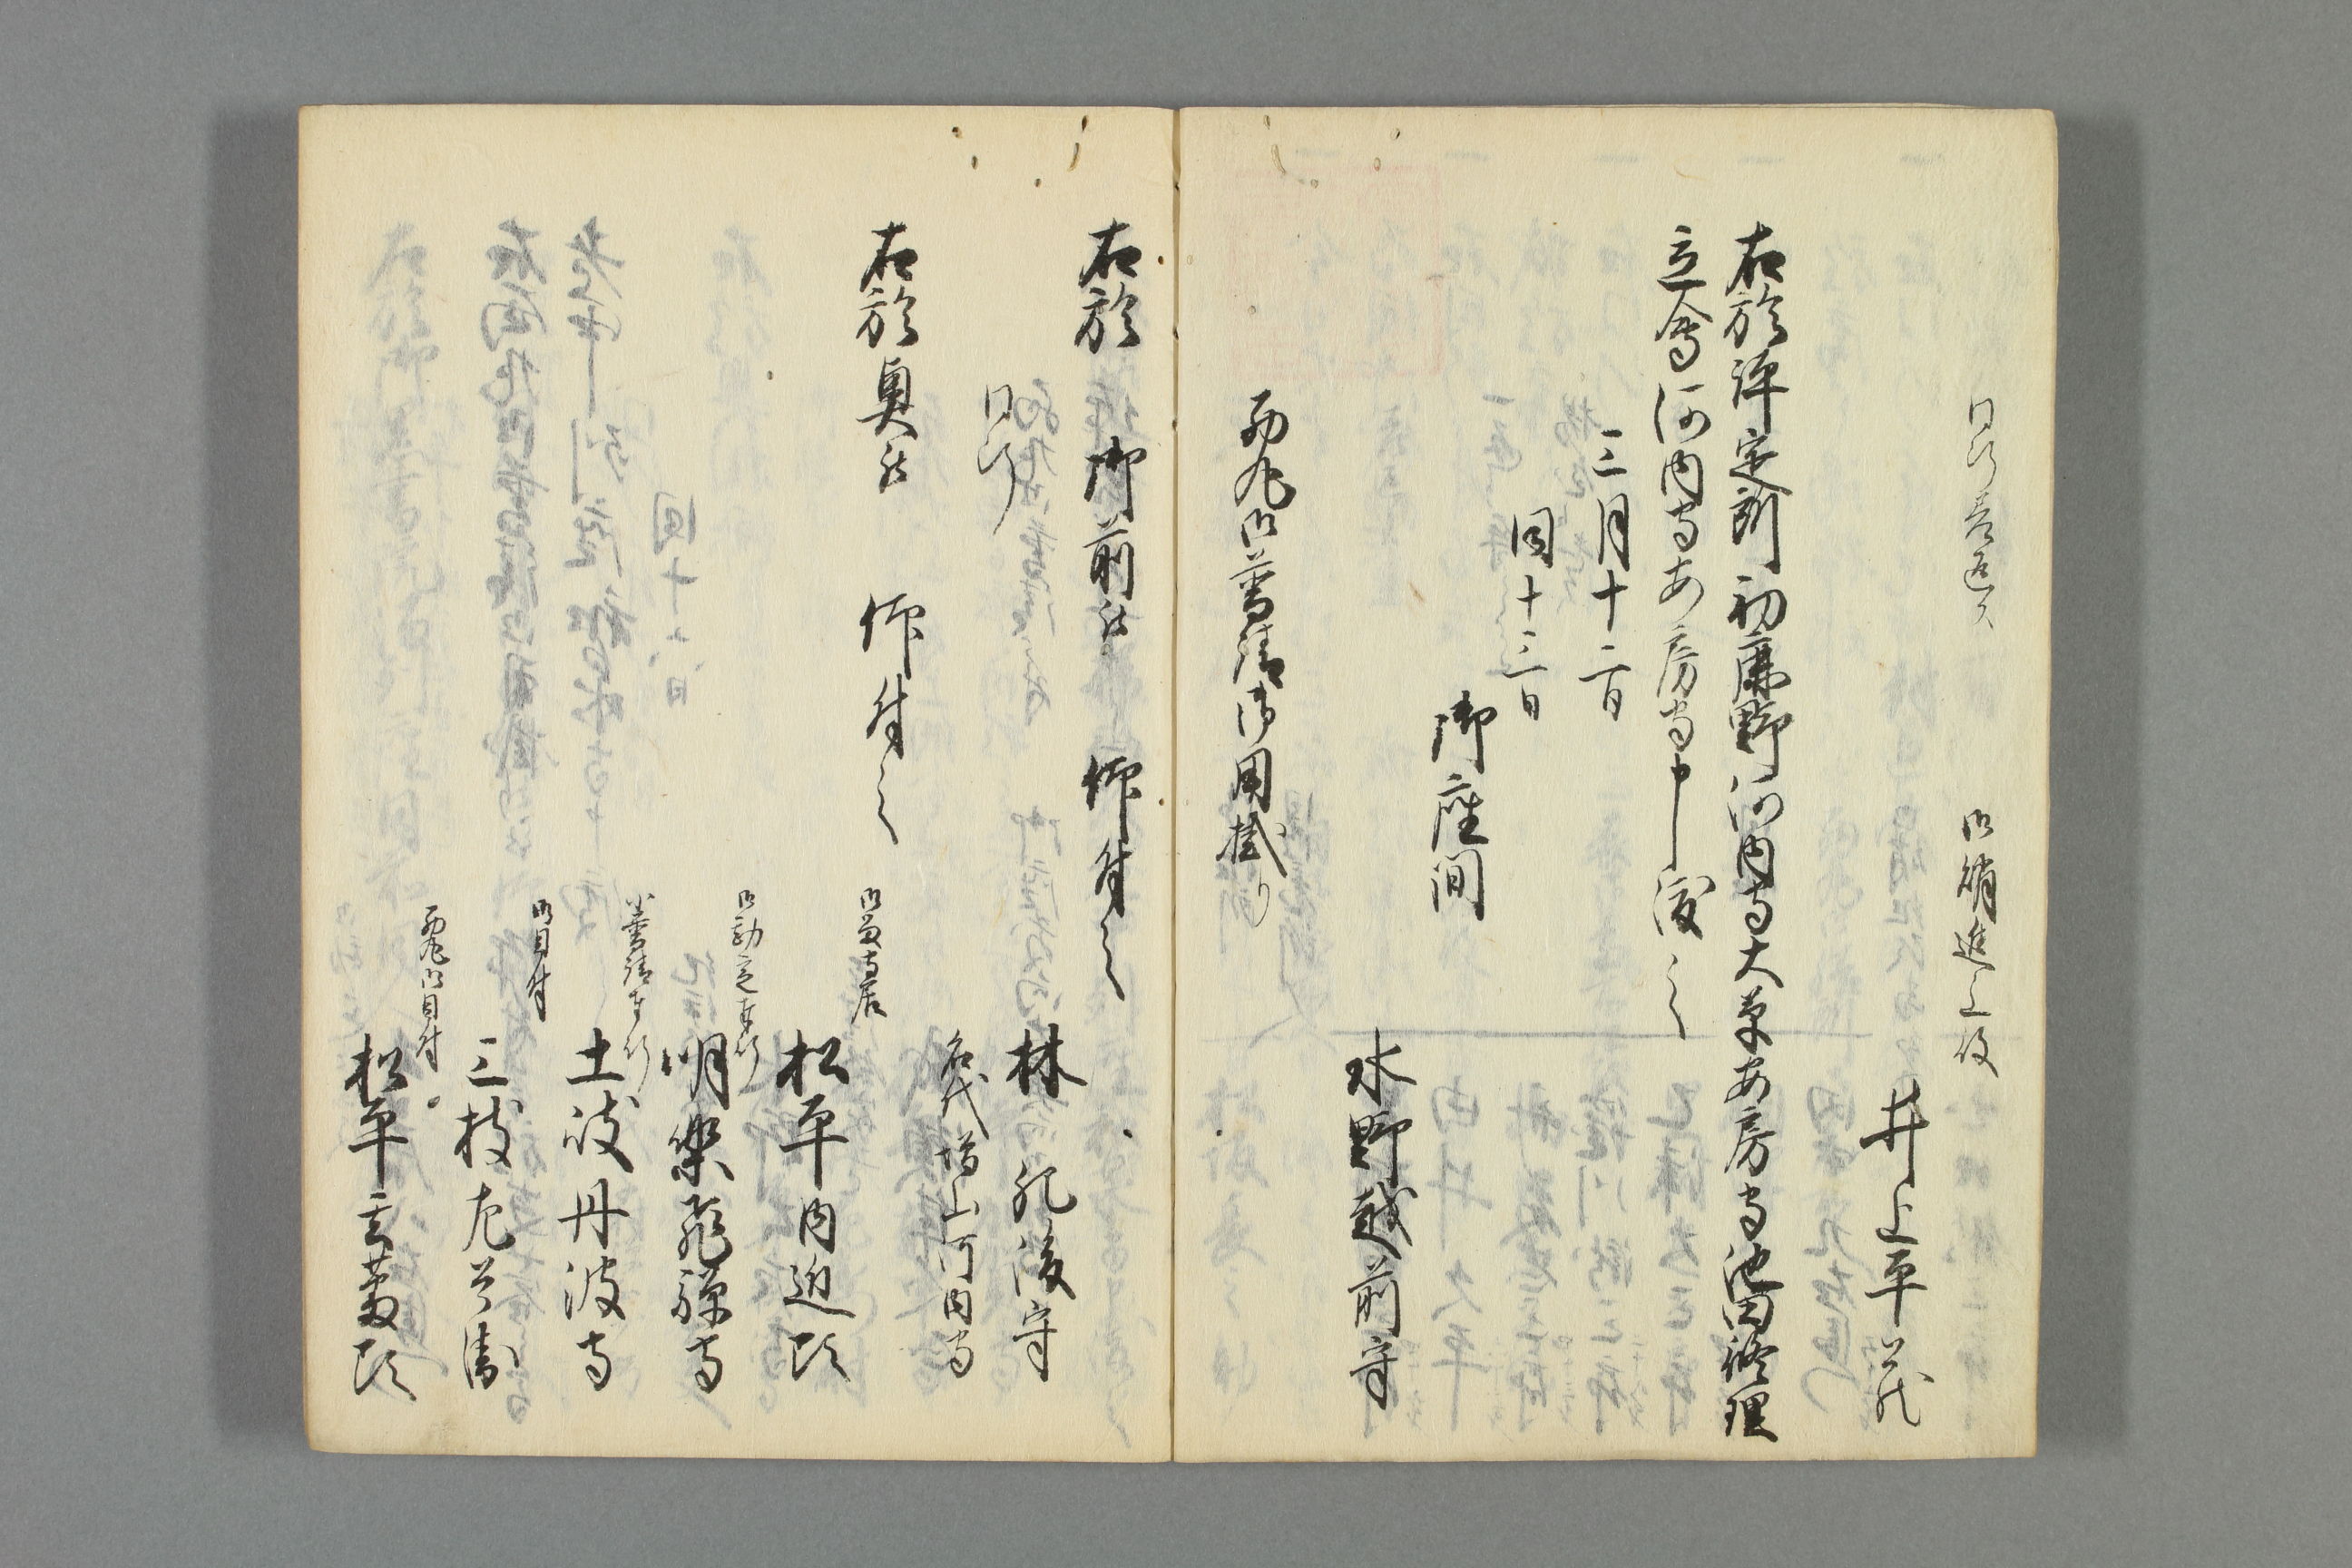 同断差返ス
御精進上役
井上平蔵
右於評定所初鹿野河内守大草安房守池田修理
立会河内守安房守申渡之
三月十二日
同十三日
御座間
水野越前守
西丸御普請御用掛り
右於 御前被 仰付之
林 肥後守
同断
名代増山河内守
右於奥被 仰付之
御留守居
松平内匠頭
御勘定奉行
明楽飛騨守
小普請奉行
土岐丹波守
御目付
三枝左兵衛
西丸御目付
松平